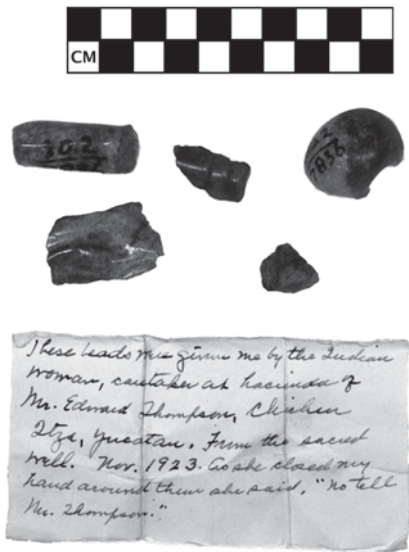 CM
30.2
30.2
7836
These beads were given me by the Indian
woman, caretaker at hacienda of
Mr. Edward Thompson, Chichen
Itza, Yucatan. From the sacred
well. Nov. 1923. As she closed my
hand around them she said, "no tell
Mr. Thompson."